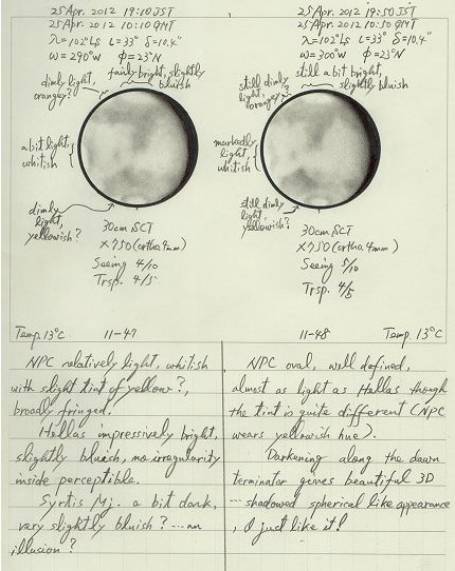 25 Apr. 2012 19:10 JST
25 Apr. 2012 10:10 GMT
λ=102°Ls ι=33° δ=10.4"
ω=290°W φ=23°N
dimly light,
orangey?
fairly bright, slightly
bluish
a bit light,
whitish
dimly
light,
yellowish?
30cm SCT
×750 (ortho. 4mm)
Seeing 4/10
Trsp. 4/5
Temp. 13°C
11-47
25 Apr. 2012 19:50 JST
25 Apr. 2012 10:50 GMT
λ=102°Ls ι=33° δ=10.4"
ω=300°W φ=23°N
still dimly
light,
orangey?
still a bit bright,
slightly bluish
markedly
light,
whitish
still dimly
light,
yellowish?
30cm SCT
×750 (ortho. 4mm)
Seeing 5/10
Trsp. 4/5
11-48
Temp. 13°C
NPC relatively light, whitish
with slight tint of yellow?,
broadly fringed.
Hellas impressively bright,
slightly bluish, no irregularity
inside perceptible.
Syrtis Mj. a bit dark,
very slightly bluish? ... an
illusion?
NPC oval, well defined,
almost as light as Hellas though
the tint is quite different (NPC
wears yellowish hue).
Darkening along the dawn
terminator gives beautiful 3D
... shadowed spherical like appearance
, I just like it!